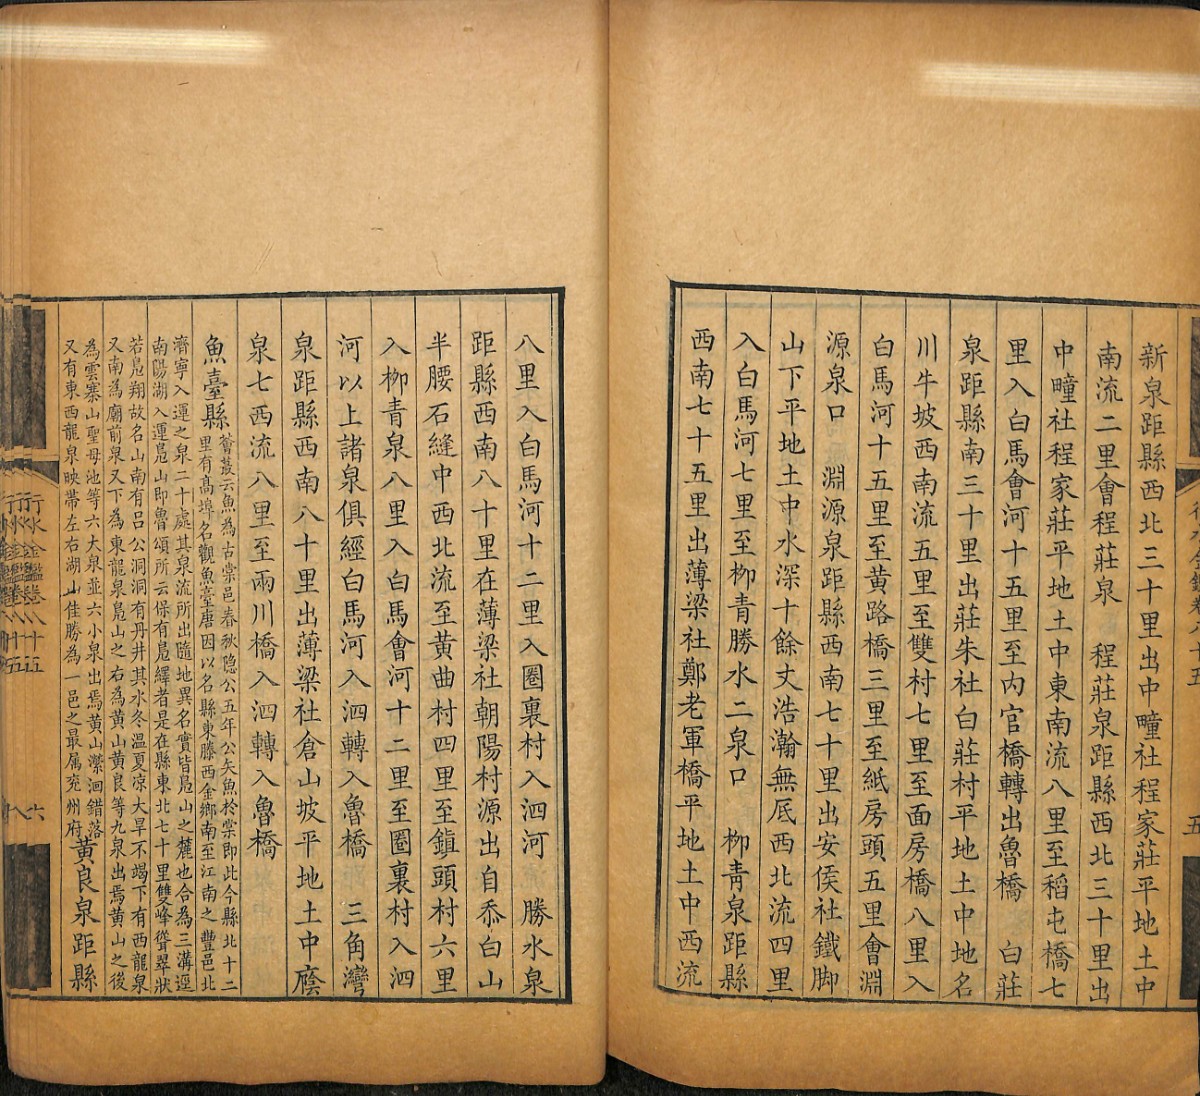 新泉距縣西北三十里出中疃社程家莊平地土中
南流二里會程莊泉　程莊泉距縣西北三十里出
中疃社程家莊平地土中東南流八里至稻屯橋七
里入白馬會河十五里至內官橋轉出魯橋　白莊
泉距縣南三十里出莊朱社白莊村平地土中地名
川牛坡西南流五里至雙村七里至面房橋八里入
白馬河十五里至黃路橋三里至紙房頭五里會淵
源泉口　淵源泉距縣西南七十里出安侯社鐵脚
山下平地土中水深十餘丈浩瀚無底西北流四里
入白馬河七里至柳青勝水二泉口　柳青泉距縣
西南七十五里出薄梁社鄭老軍橋平地土中西流
八里入白馬河十二里入圈裏村入泗河　勝水泉
距縣西南八十里在薄梁社朝陽村源出自忝白山
半腰石縫中西北流至黃曲村四里至鎮頭村六里
入柳青泉八里入白馬會河十二里至圈裏村入泗
河以上諸泉俱經白馬河入泗轉入魯橋　三角灣
泉距縣西南八十里出薄梁社倉山坡平地土中
泉七西流八里至兩川橋入泗轉入魯橋
魚臺縣
薈蕞云魚為古棠邑春秋隐公五年公矢魚於棠即此今縣北十二
里有高埠名觀魚臺唐因以名縣東滕西金鄉南至江南之豐邑北
濟寧入運之泉二十處其泉流所出隨地異名實皆鳧山之麓也合為三溝逕
南陽湖入運鳧山即魯頌所云保有鳧繹者是在縣東北七十里雙峰聳翠狀
若鳧翔故名山南有呂公洞洞有丹井其水冬溫夏凉大旱不竭下有西龍泉
又南為廟前泉又下為東龍泉鳧山之右為黃山黃良等九泉出焉黃山之後
為雲寨山聖母池等六大泉並六小泉出焉黃山瀠洄錯落
又有東西龍泉映帶左右湖山佳勝為一邑之最属兖州府
黃良泉距縣
行水金鑑卷八十五
六
五